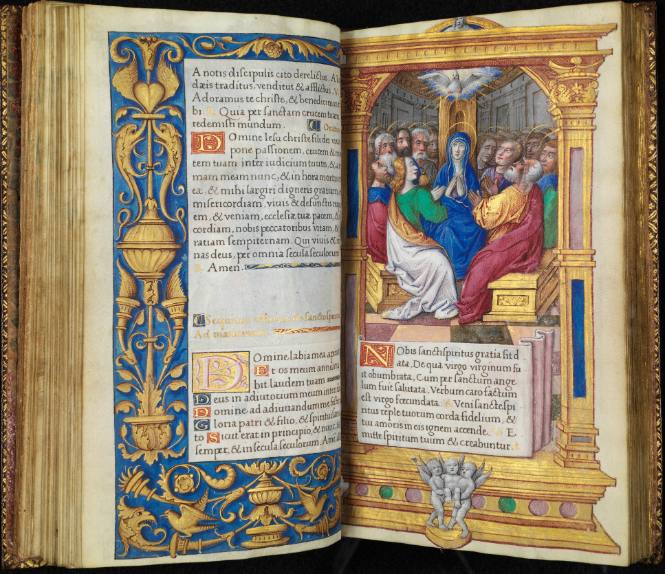 A notis discipulis cito derelictus. A
dæis traditus, venditus & afflictus. V
Adoramus te christe, & benedicimus
bi. Quia per sanctam crucem tuam
redemisti mundum.
Domine Iesu christe fili dei
pone passionem, crucem &
tem tuam inter iudicium tuum, &
mam meam nunc, & in hora mortis
eæ. & mihi largiri digneris gratiam
misericordiam, viuis & defunctis
em, & veniam, ecclesiæ tuæ pacem, &
cordiam, nobis peccatoribus vitam, &
ratiam sempiternam. Qui viuis &
nas deus, per omnia secula seculorum
Amen.
Ad
Domine labia mea
Et os meum annun
bit laudem tuam
Deus in adiutorium meum inten
Domine ad adiuuandum me festin
Gloria patri & filio, & spiritui
to Sicut erat in principio, & nunc &
semper, & in secula seculorum. Ame
Nobis sancti spiritus gratia sit d
ata. De qua virgo virginum fu
it obumbrata, Cum per sanctum ange
lum fuit salutata. Verbum caro factum
est virgo fœcundata. Veni sancte spi
ritus reple tuorum corda fidelium, &
tui amoris in eis ignem accende. E
mitte spiritum tuum & creabuntur.